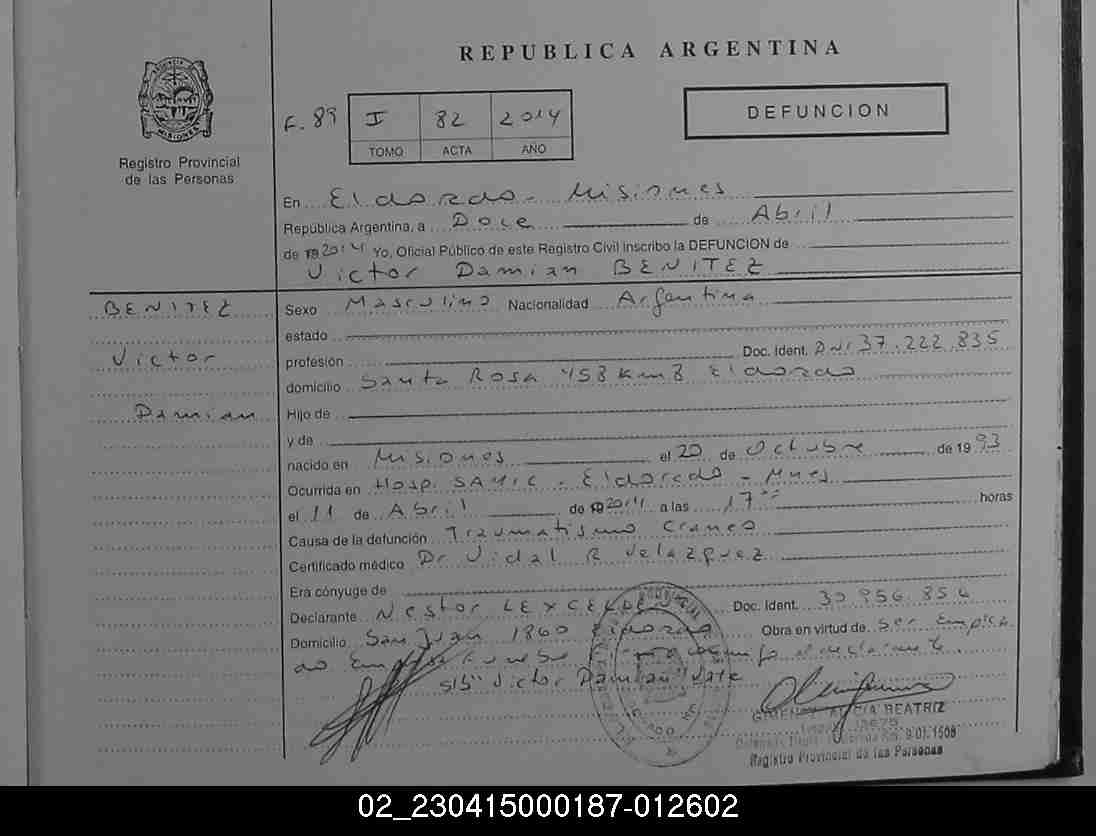 REPUBLICA ARGENTINA
Registro Provincial
de las Personas
F. 89 I 82 2014
TOMO ACTA AÑO
DEFUNCION
En Eldorado - Misiones
República Argentina, a Doce de Abril
de 192014 Yo, Oficial Público de este Registro Civil inscribo la DEFUNCION de
Victor Damian BENITEZ
BENITEZ
Victor
Damian
Sexo Masculino Nacionalidad Argentina
estado
profesión Doc. Ident. DNI 37.222.835
domicilio Santa Rosa 458 km 8 Eldorado
Hijo de
y de
nacido en Misiones el 20 de Octubre de 1993
Ocurrida en Hosp. SAMIC - Eldorado - Mnes
el 11 de Abril de 192014 a las 17 horas
Causa de la defunción Traumatismo Craneo
Certificado médico Dr Vidal R Velazquez
Era cónyuge de
Declarante Nestor Doc. Ident. 30 956 854
Domicilio San Juan 1860 Eldorado Obra en virtud de ser Emplea
do el declarante.
S/B "Victor Damian" Vale
GIMENEZ ALICIA BEATRIZ
Registro Provincial de las Personas
02_230415000187-012602